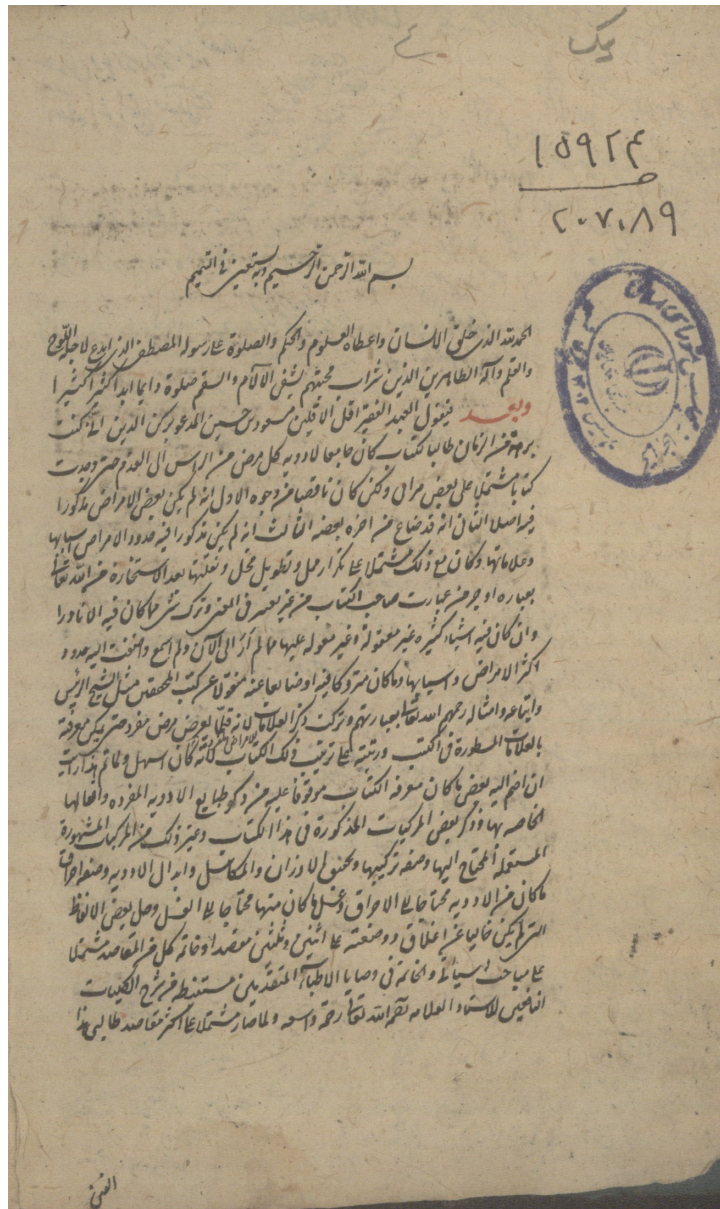 یک
۱۵۹۲۴
۲۰۷۰۸۹
بسم الله الرحمن الرحيم وبه نستعين في التتميم
الحمد لله الذى خلق الانسان واعطاه العلوم والحكم والصلوة على رسوله المصطفى الذى ابدع لاجله اللوح
والقلم وآله الطاهرين الذين شراب محبتهم يشفى الآلام والسقم صلوة دايما ابدا كثيرا كثيرا
وبعد فيقول العبد الفقير اقل الاقلين مسعود بن حسين المدعو بركن الدين انى كنت
برهة من الزمان طالبا لكتاب كان جامعا لادويه كل مرض من الراس الى القدم حتى وجدت
كتابا مشتملا على بعض مرامى ولكن كان ناقصا من وجوه الاول انه لم يكن بعض الامراض مذكورا
فيه اصلا الثانى انه قد ضاع من اخره بعضه الثالث انه لم يكن مذكورا فيه حدود الامراض واسبابها
وعلاماتها وكان مع ذلك مشتملا على تكرار ممل وتطويل مخل ونقلتها بعد الاستخارة من الله تعالى
بعباره اوجز من عبارت صاحب الكتاب من غير تغيير فى المعنى وترك شئ مما كان فيه الا نادرا
وان كان فيه اشياء كثيره غير معقولة وغير معوله عليها مما لم ار الى الآن ولم اسمع واضفت اليه حدود
اكثر الامراض واسبابها وما كان متروكا فيه اوضايعا عنه منقولا عن كتب المحققين مثل الشيخ الرئيس
واتباعه وامثاله رحمهم الله تعالى بعبارتهم وتركت ذكر العلامات لانه قلما يعرض مرض مفرد حتى يمكن معرفة
بالعلامات المسطورة فى الكتب ورتبته على ترتيب ذلك الكتاب لانه كان اسهل ولما تم هذا رايت
ان اضم اليه بعض ما كان معرفة الكتاب موقوفا عليه من ذكر طبايع الادويه المفرده وافعالها
الخاصه بها وذكر بعض المركبات المذكورة فى هذا الكتاب وغير ذلك من المركبات المشهورة
المستعملة المحتاج اليها وصفه تركيبها وتحقيق الاوزان والمكائيل وابدال الادويه وصفه احراق
ما كان من الادويه محتاجا الى الاحراق وغسل ما كان منها محتاجا الى الغسل وحل بعض الالفاظ
التى لم يكن خاليا عن اغلاق ووضعته على اثنين وثلثين مقصدا وخاتمه كل من المقاصد مشتملا
على مباحث اسبابه والخاتمة فى وصايا الاطباء المتقدمين مستنبطه من شرح الكليات
النفيس للاستاد العلامه رحمه الله تعالى رحمة واسعه ولما صار مشتملا على اكثر مقاصد طالبى هذا
الفن